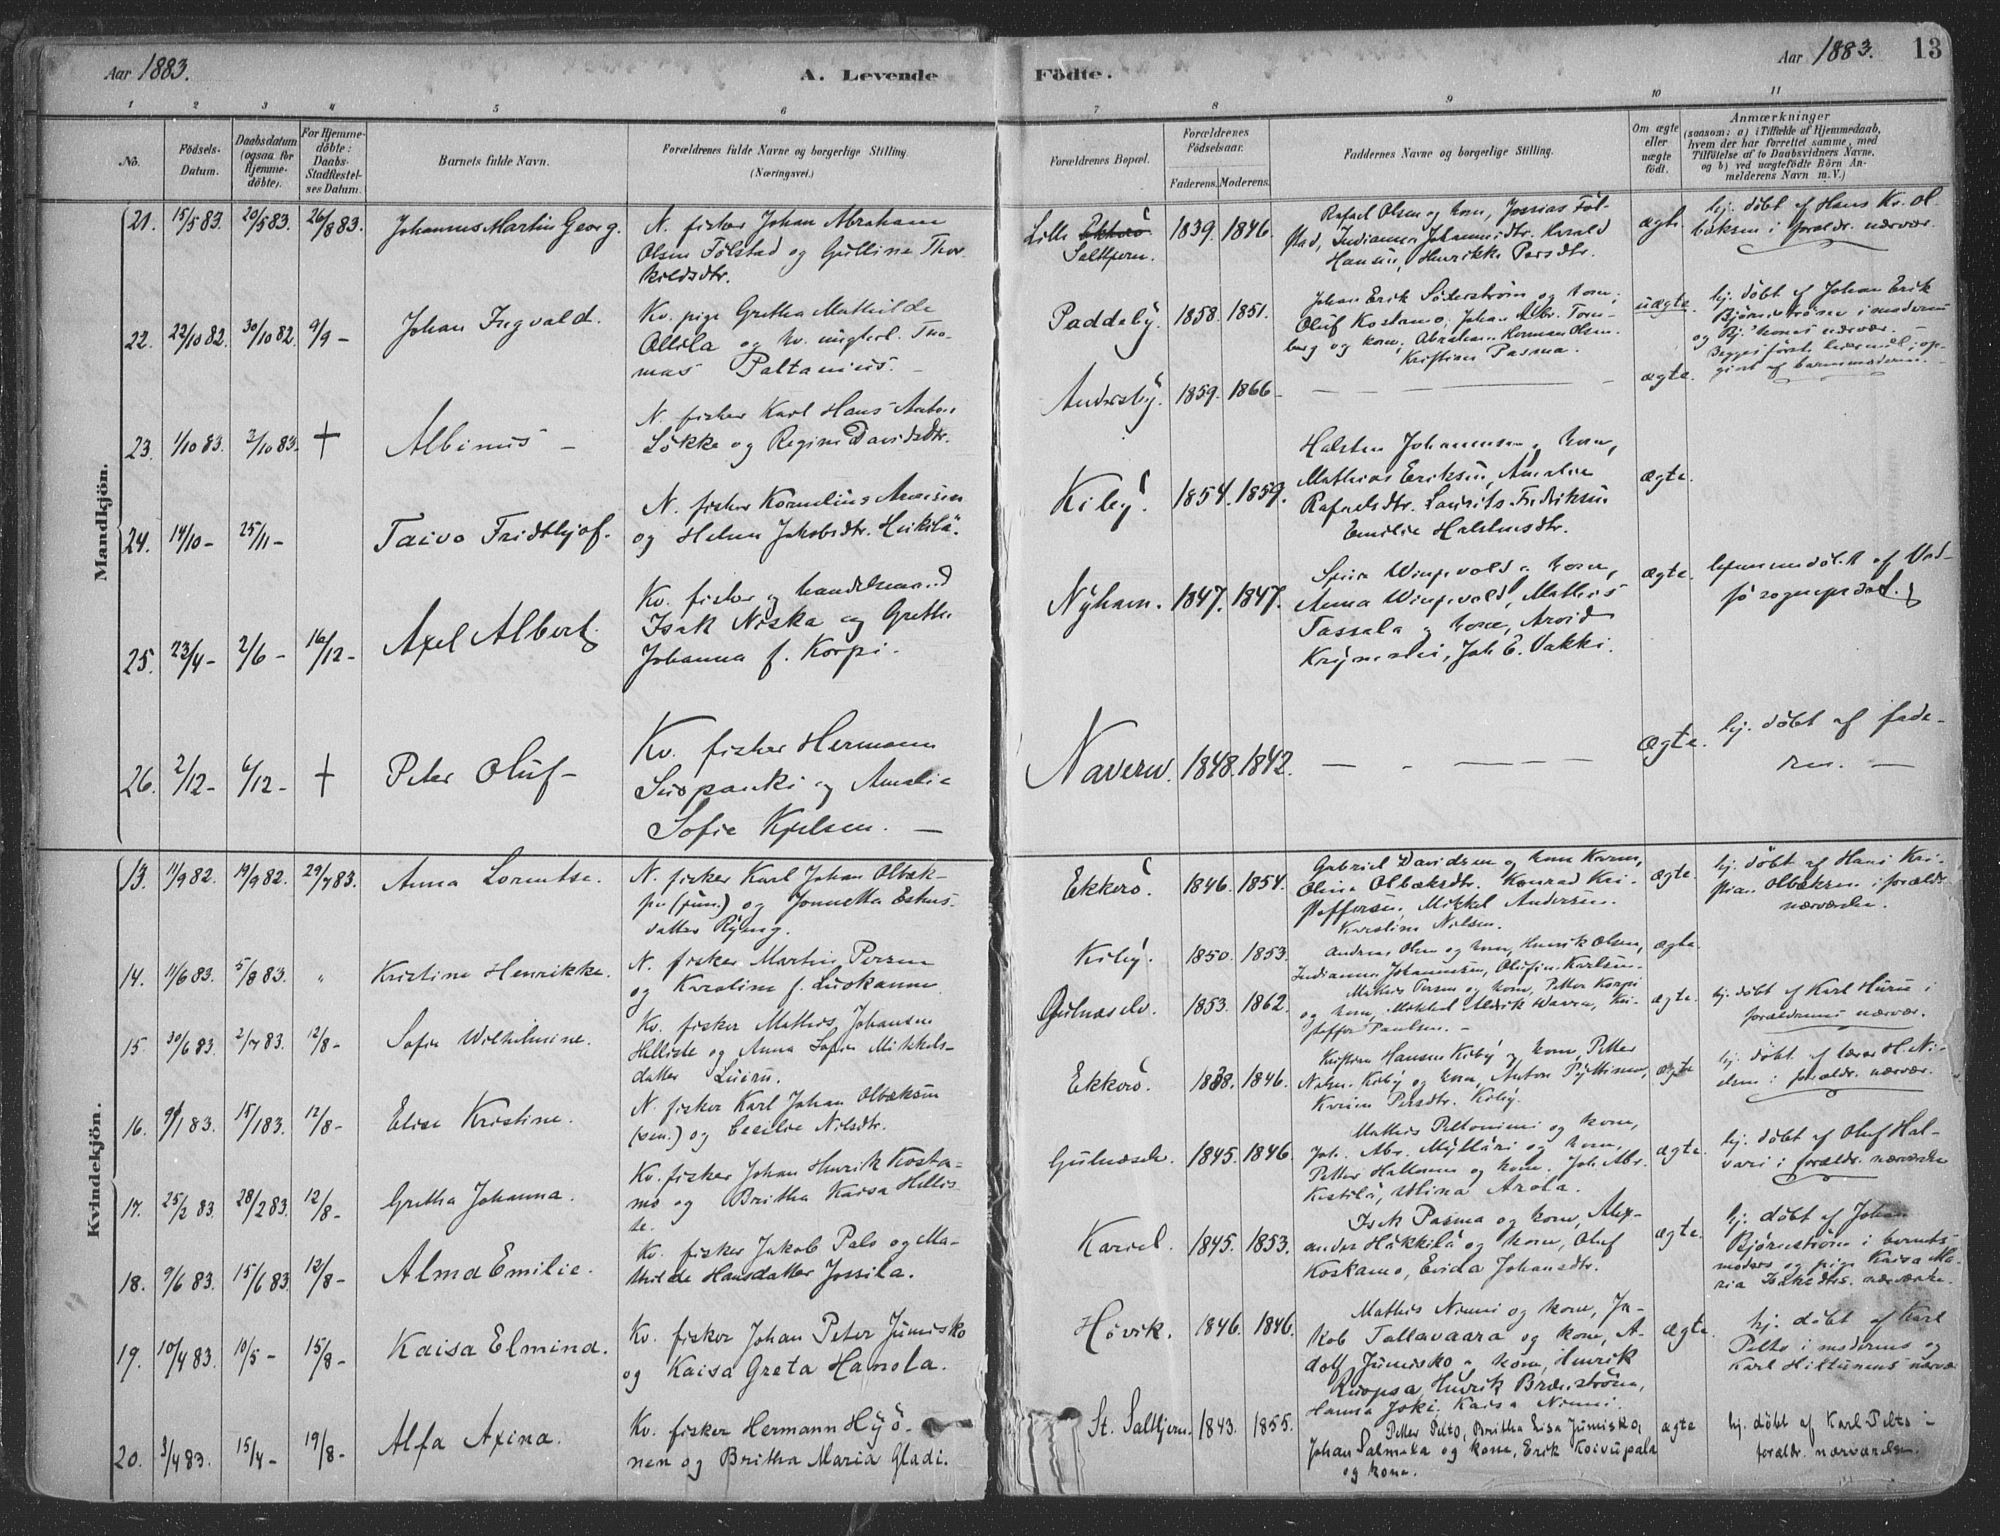 Aar 1883.
A. Levende
Födte.
Aar 1883.
13
1 2 3 4 5 6 7 8 9 10 11
No.
Födsels-
Datum.
Daabsdatum
(ogsaa for
Hjemme-
döbte).
For Hjemme-
döbte:
Daabs-
Stadfæstel-
ses Datum.
Barnets fulde Navn.
Forældrenes fulde Navne og borgerlige Stilling.
(Næringsvei.)
Forældrenes Bopæl.
Forældrenes
Födselsaar.
Faderens. Moderens.
Faddernes Navne og borgerlige Stilling.
Om ægte
eller
uægte
födt.
Anmærkninger
(saasom: a) i Tilfælde af Hjemmedaab,
hvem der har forrettet samme, med
Tilföielse af to Daabsvidners Navne,
og b) ved uægtefödte Börn An-
melderens Navn m. V.)
Mandkjön.
21. 15/5 83. 20/5 83. 26/8 83. Johannes Martin Georg.
N. fisker Johan Abraham
Olsen Fölstad og Gulline Thor-
kildsdtr.
Lille Ekkerö
Saltjern.
1839. 1846.
Rafael Olsen og kone, Jossias Föl-
stad, Indianna Johannesdtr. Harald
Hansen, Henrikke Persdtr.
ægte.
hj. döbt af Hans Kr. Ol-
bæksen i forældr. nærvær.
22. 22/10 82. 30/10 82. 9/9 - Johan Ingvald.
Kv. pige Gretha Mathilde
Ollila og kv. ungkarl Tho-
mas Paltamus. -
Paddeby. 1858. 1851.
Johan Erik Söderström og kone,
Oluf Kostamo, Johan Albr. Torn-
berg og kone, Abraham Herman Olsen.
Kristian Pasma.
uægte.
hj. döbt af Johan Erik
Björnström i moderens
og Bj.' kones nærvær.
Begges förste leiermål, op-
givet af barnemoderen.
23. 1/10 83. 2/10 83. † Albinus -
N. fisker Karl Hans Anton
Lökke og Regine Davidsdtr.
Andersby. 1859. 1866.
ægte.
24. 14/10 - 25/11 - Taivo Fridthjof.
N. fisker Kornelius Arnesen
og Helena Jakobsdtr. Heikilä.
Kiby. 1854. 1859.
Halsten Johannesen og kone,
Mathias Eriksen, Amalie
Rafaelsdtr. Laurits Fredriksen
Emilie Halstensdtr.
ægte.
25. 23/4 - 2/6 - 16/12 - Axel Albert.
Kv. fisker og handelsmand
Isak Niska og Grethe
Johanna f. Korpi.
Nyhavn. 1847. 1847.
Anna Wingevold, Mathis
Tassala og kone, Arvid
Joh. E. Vakki.
ægte.
hjemmedöbt af Vad-
sö sogneprest.
26. 2/12 - 6/12 - † Peter Oluf -
Kv. fisker Hermann
Suopanki og Amalie
Sofie Kjelsen. -
Naveren. 1848. 1842.
ægte.
hj. döbt af fade-
ren. -
Kvindekjön.
13. 11/9 82. 19/9 82. 29/7 83. Anna Lorentse.
N. fisker Karl Johan Olbæk-
sen (jun.) og Jonnetta Eshus-
datter Ryeng.
Ekkerö. 1846. 1854.
Gabriel Davidsen og kone Karen,
Olina Olbæksdtr. Konrad Kri-
stoffersen, Mikkel Andersen.
Karoline Nilsen.
ægte.
hj. döbt af Hans Kri-
stian Olbæksen i forældr.
nærværelse.
14. 11/6 83. 5/8 83. " Kristine Henrikke.
N. fisker Martin Persen
og Karoline f. Luokanen.
Kiby. 1850. 1853.
Anders Olsen og kone, Henrik Olsen,
Indianna Johannesen, Olufine Karlsen.
ægte
15. 30/6 83. 2/7 83. 12/8 - Sofie Wilhelmine.
Kv. fisker Mathis Johansen
Helliste og Anna Sofie Mikkels-
datter Luiru.
Gulnæselv. 1853. 1862.
Mathis Persen og kone, Petter Korpi
og kone, Mikkel Waara, Kri-
stoffer Paulsen. -
ægte.
hj. döbt af Karl Huru i
forældrenes nærvær.
16. 9/1 83. 15/1 83. 12/8 - Elise Kristine.
N. fisker Karl Johan Olbæksen
(sen.) og Cecilie Nilsdtr.
Ekkerö. 1838. 1846.
Kristian Hansen Kiby og kone, Petter
Nilsen Kiby og kone, Anton Pyttinen,
Karen Persdtr. Kiby.
ægte
hj. döbt af lærer H. Ni-
elsen i forældr. nærvær.
17. 25/2 83. 28/2 83. 12/8 - Gretha Johanna.
Kv. fisker Johan Henrik Kosta-
mo og Britha Kaisa Hellis-
te.
Gulnæselv. 1845. 1846.
Mathis Peltoniemi og kone,
Joh. Abr. Myllari og kone,
Petter Hallonen og kone. Joh. Abr.
Kestilä, Ulina Arola.
ægte.
hj. döbt af Oluf Hal-
vari i forældr. nærværelse
18. 9/6 83. 15/6 83. 12/8 - Alma Emilie.
Kv. fisker Jakob Palo og Ma-
thilde Hansdatter Jossila.
Kariel. 1845. 1853.
Isak Pasma og kone, Alex-
ander Häkkilä og kone, Oluf
Koskamo, Evida Johansdtr.
ægte.
hj. döbt af Johan
Björnström i barnets
moders og pige Kaisa Ma-
ria Isaksdtrs. nærværelse.
19. 10/4 83. 10/5 - 15/8 - Kaisa Elmina.
Kv. fisker Johan Peter Jumisko
og Kaisa Greta Hamola.
Hövik. 1846. 1846.
Mathis Niemi og kone, Ja-
kob Tallavaara og kone, A-
dolf Jumisko og kone, Henrik
Ruopsa, Henrik Brændström,
Hanna Joki, Kaisa Niemi.
ægte.
hj. döbt af Karl
Pelto i moderens og
Karl Hiltunens nærvær
20. 3/4 83. 15/4 - 19/8 - Alfa Axina.
Kv. fisker Hermann Hyö-
nen og Britha Maria Gladi.
St. Saltjern. 1843. 1855.
Petter Pelto, Britha Lisa Jumisko,
Johan Salmela og kone, Erik Koivupala
og kone.
ægte
hj. döbt af Karl Pelto i
forældr. nærværelse.